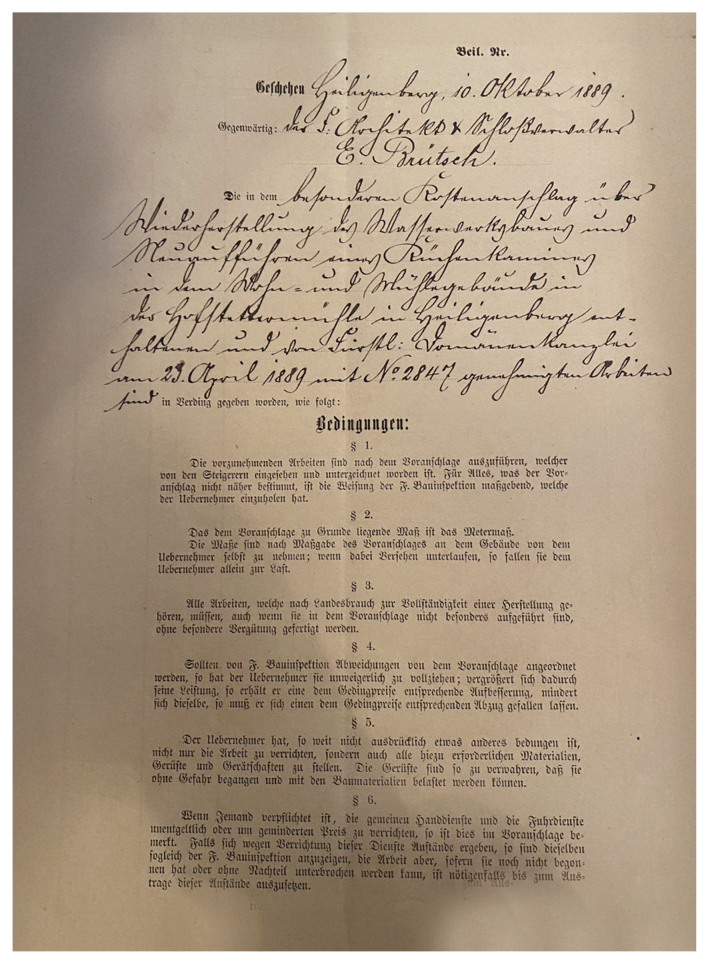 Beil. Nr.
Geschehen Heiligenberg, 10. Oktober 1889.
Gegenwärtig: der F. Architekt & Schloßverwalter
E. Brütsch.
Die in dem besonderen Kostenanschlag über
Wiederherstellung des Wasserwerksbaues und
Neuaufführen eines Küchenkamines
in dem Wohn- und Mühlegebäude in
der Hofstettermühle in Heiligenberg ent-
haltenen und von Fürstl: Domänenkanzlei
am 23. April 1889 mit No. 2847 genehmigten Arbeiten
sind in Verding gegeben worden, wie folgt:
Bedingungen:
§ 1.
Die vorzunehmenden Arbeiten sind nach dem Voranschlage auszuführen, welcher
von den Steigerern eingesehen und unterzeichnet worden ist. Für Alles, was der Vor-
anschlag nicht näher bestimmt, ist die Weisung der F. Bauinspektion maßgebend, welche
der Uebernehmer einzuholen hat.
§ 2.
Das dem Voranschlage zu Grunde liegende Maß ist das Metermaß.
Die Maße sind nach Maßgabe des Voranschlages an dem Gebäude von dem
Uebernehmer selbst zu nehmen; wenn dabei Versehen unterlaufen, so fallen sie dem
Uebernehmer allein zur Last.
§ 3.
Alle Arbeiten, welche nach Landesbrauch zur Vollständigkeit einer Herstellung ge-
hören, müssen, auch wenn sie in dem Voranschlage nicht besonders aufgeführt sind,
ohne besondere Vergütung gefertigt werden.
§ 4.
Sollten von F. Bauinspektion Abweichungen von dem Voranschlage angeordnet
werden, so hat der Uebernehmer sie unweigerlich zu vollziehen; vergrößert sich dadurch
seine Leistung, so erhält er eine dem Gedingpreise entsprechende Aufbesserung, mindert
sich dieselbe, so muß er sich einen dem Gedingpreise entsprechenden Abzug gefallen lassen.
§ 5.
Der Uebernehmer hat, so weit nicht ausdrücklich etwas anderes bedungen ist,
nicht nur die Arbeit zu verrichten, sondern auch alle hiezu erforderlichen Materialien,
Gerüste und Gerätschaften zu stellen. Die Gerüste sind so zu verwahren, daß sie
ohne Gefahr begangen und mit den Baumaterialien belastet werden können.
§ 6.
Wenn Jemand verpflichtet ist, die gemeinen Handdienste und die Fuhrdienste
unentgeltlich oder um geminderten Preis zu verrichten, so ist dies im Voranschlage be-
merkt. Falls sich wegen Verrichtung dieser Dienste Anstände ergeben, so sind dieselben
sogleich der F. Bauinspektion anzuzeigen, die Arbeit aber, sofern sie noch nicht begon-
nen hat oder ohne Nachteil unterbrochen werden kann, ist nötigenfalls bis zum Aus-
trage dieser Anstände auszusetzen.